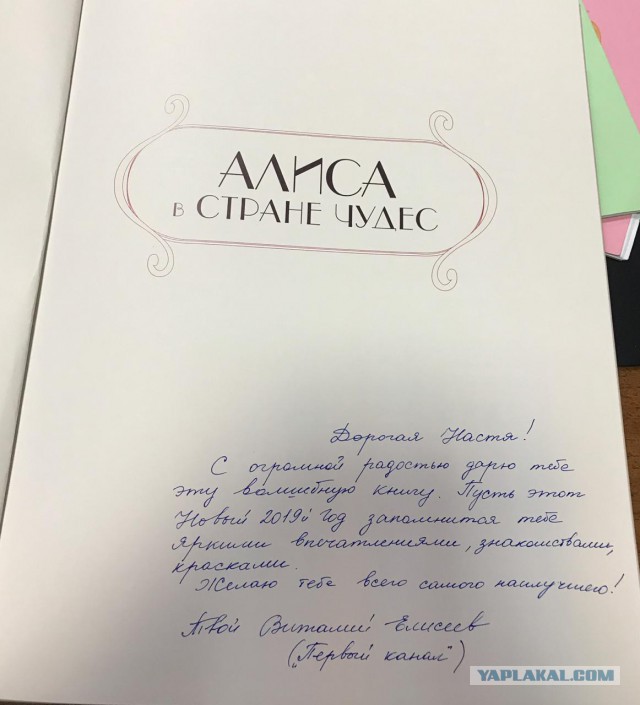 АЛИСА
В СТРАНЕ ЧУДЕС
Дорогая Настя!
С огромной радостью дарю тебе
эту волшебную книгу. Пусть этот
Новый 2019й Год запомнится тебе
яркими впечатлениями, знакомствами,
красками.
Желаю тебе всего самого наилучшего!
Твой Виталий Елисеев
("Первый канал")
YAPLAKAL.COM